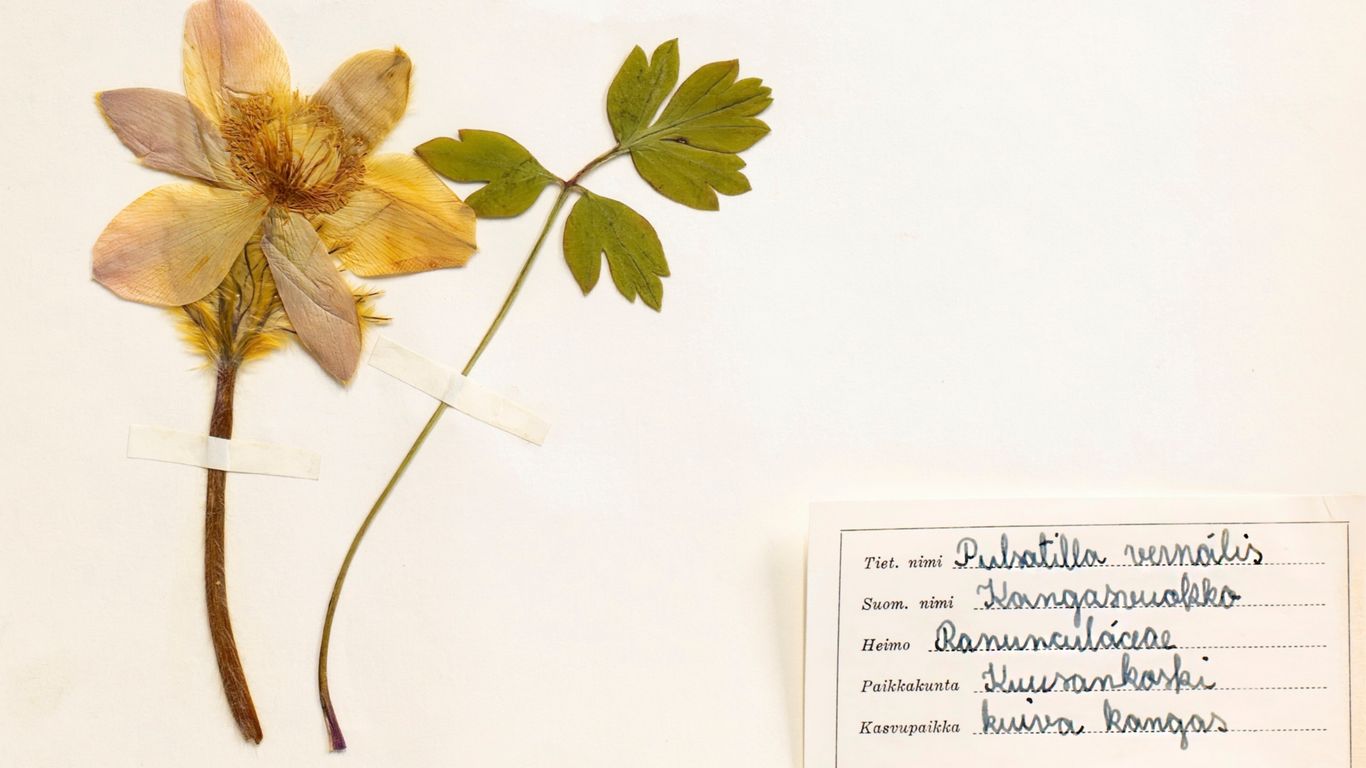 Tiet. nimi Pulsatilla vernális
Suom. nimi Kangasvuokko
Heimo Ranunculáceae
Paikkakunta Kuusankoski
Kasvupaikka kuiva kangas